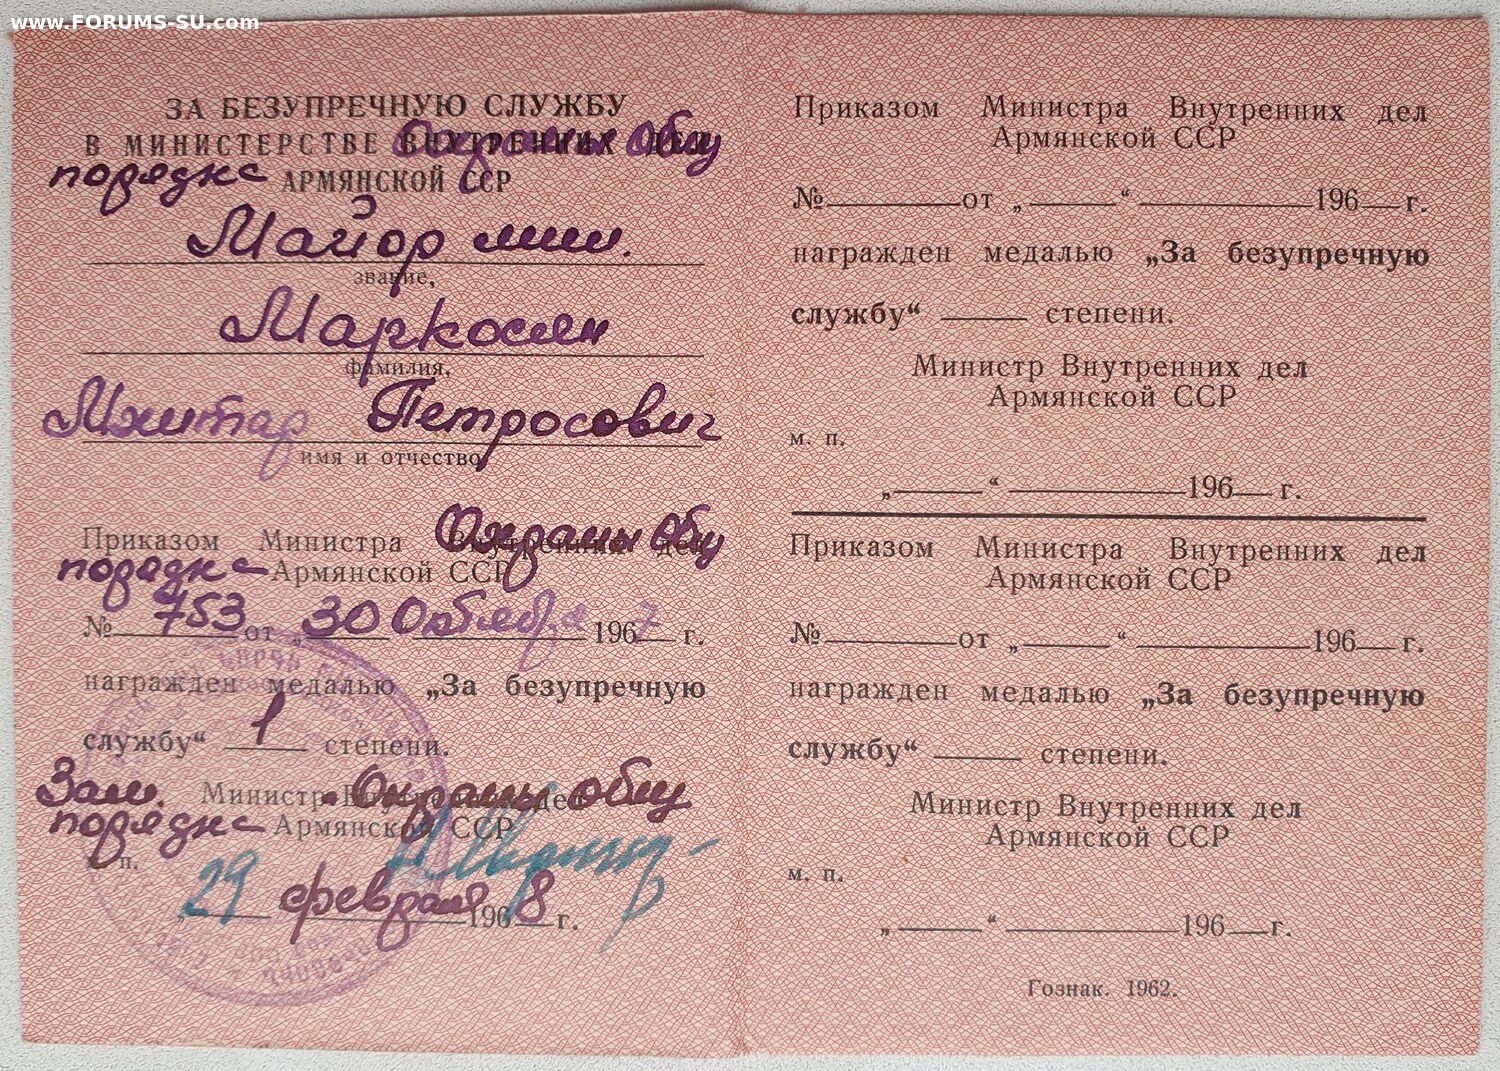 www.FORUMS-SU.com
ЗА БЕЗУПРЕЧНУЮ СЛУЖБУ
В МИНИСТЕРСТВЕ ВНУТРЕННИХ ДЕЛ Охраны Общ
порядка АРМЯНСКОЙ ССР
Майор мил.
звание,
Маркосян
фамилия,
Мхитар Петросович
имя и отчество
Приказом Министра Внутренних дел Охраны Общ
порядка Армянской ССР
№ 753 от „ 30 Октября 1967 г.
награжден медалью „За безупречную
службу“ 1 степени.
Зам. Министр Внутренних дел Охраны общ
порядка Армянской ССР
м. п.
„ 29 февраля 1968 г.
Приказом Министра Внутренних дел
Армянской ССР
№ от „ “ 196 г.
награжден медалью „За безупречную
службу“ степени.
Министр Внутренних дел
Армянской ССР
м. п.
„ “ 196 г.
Приказом Министра Внутренних дел
Армянской ССР
№ от „ “ 196 г.
награжден медалью „За безупречную
службу“ степени.
Министр Внутренних дел
Армянской ССР
м. п.
„ “ 196 г.
Гознак. 1962.